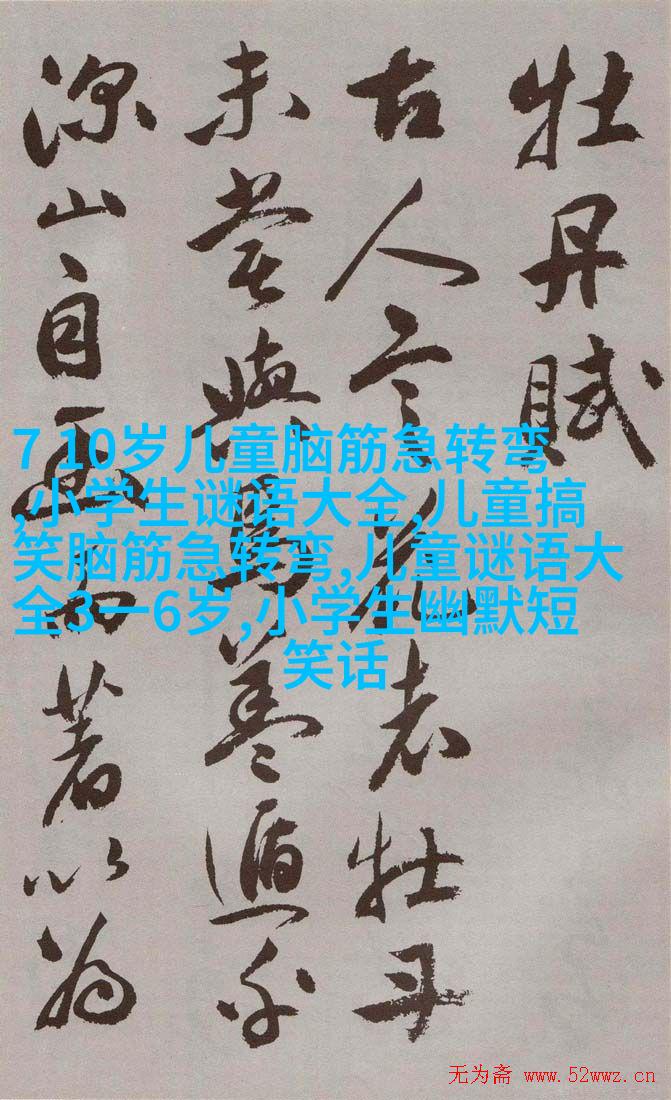 牡丹賦
古人言花者牡丹
未嘗與焉蓋遁乎
深山自幽而著以為
7 10岁儿童脑筋急转弯
,小学生谜语大全,儿童搞
笑脑筋急转弯,儿童谜语大
全3一6岁,小学生幽默短
笑话
无为斋 www.52wwz.cn